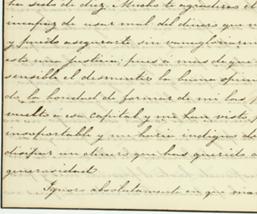 ha sido de diez. Mucho te agradezco el
incapaz de usar mal del dinero que m
y puedo asegurarte sin vanagloriarm
esta una justicia; pues a mas de que
sensible el desmentir la buena opin
de la bondad de formar de mi los p
vuelto a esa capital y me han visto, p
insoportable y me haria indigno de
disipar un dinero que has querido c
generosidad.
Ignoro absolutamente en que man